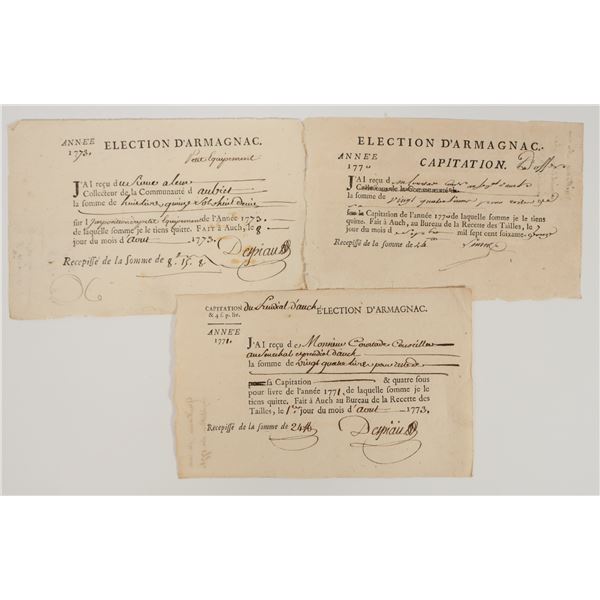 ANNÉE
1773.
ELECTION D'ARMAGNAC.
Petit Equipement
J'AI reçu de
Collecteur de la Communauté d'aubiet
la somme de huit livres quinze sols huit deniers
sur l'Imposition du petit Equipement de l'Année 1773.
de laquelle somme je le tiens quitte. FAIT à AUCH, le 8
jour du mois d'aout 1773. Despiau
Recepissé de la Somme de 8# 15s 8
ELECTION D'ARMAGNAC.
ANNÉE
1770
CAPITATION.
J'AI reçu d
Collecteur de la Communauté
la somme de vingt quatre livres pour
sous la Capitation de l'année 1770 de laquelle somme je le tiens
quitte. Fait à Auch, au Bureau de la Recette des Tailles, le 7
jour du mois d mil sept cent soixante-
Recepissé de la somme de 24
CAPITATION
& 4 s. p. liv.
du Senéchal d'auch
ELECTION D'ARMAGNAC.
ANNÉE
1771.
J'AI reçu de Monsieur Conseiller
au senechal et presidial d'auch
la somme de vingt quatre livres pour
sa Capitation & quatre sous
pour livre de l'année 1771, de laquelle somme je le
tiens quitte. Fait à Auch au Bureau de la Recette des
Tailles, le 1er jour du mois d'aout 1773.
Recepissé de la somme de 24# Despiau